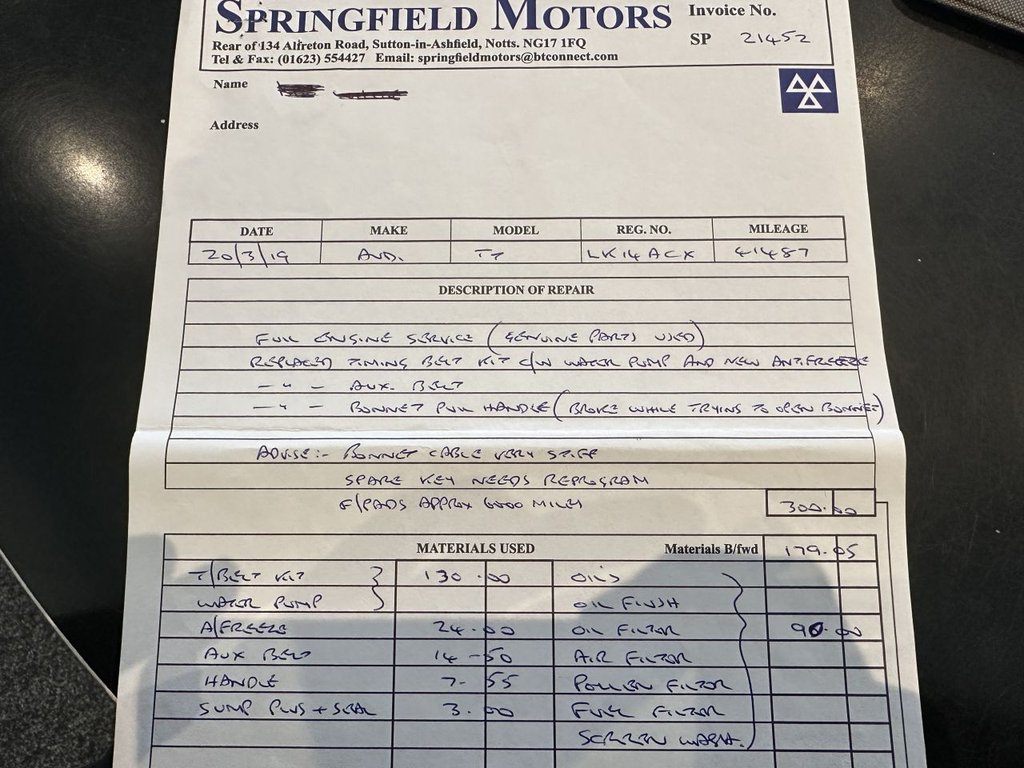 SPRINGFIELD MOTORS
Invoice No.
Rear of 134 Alfreton Road, Sutton-in-Ashfield, Notts. NG17 1FQ
SP 21452
Tel & Fax: (01623) 554427 Email: springfieldmotors@btconnect.com
Name
Address
DATE MAKE MODEL REG. NO. MILEAGE
20/3/19 AUD. TT LK14 ACX 41487
DESCRIPTION OF REPAIR
FULL ENGINE SERVICE (GENUINE PARTS USED)
REPLACED TIMING BELT KIT C/W WATER PUMP AND NEW ANTIFREEZE
— " — AUX. BELT
— " — BONNET PULL HANDLE (BROKE WHILE TRYING TO OPEN BONNET)
ADVISE:- BONNET CABLE VERY STIFF
SPARE KEY NEEDS REPROGRAM
F/PADS APPROX 6000 MILES
300.00
MATERIALS USED Materials B/fwd 179.05
T/BELT KIT 130.00 OILS
WATER PUMP OIL FLUSH
A/FREEZE 24.00 OIL FILTOR 90.00
AUX BELT 14-50 AIR FILTOR
HANDLE 7-55 POLLEN FILTOR
SUMP PLUG + SEAL 3.00 FUEL FILTOR
SCREEN WASH.